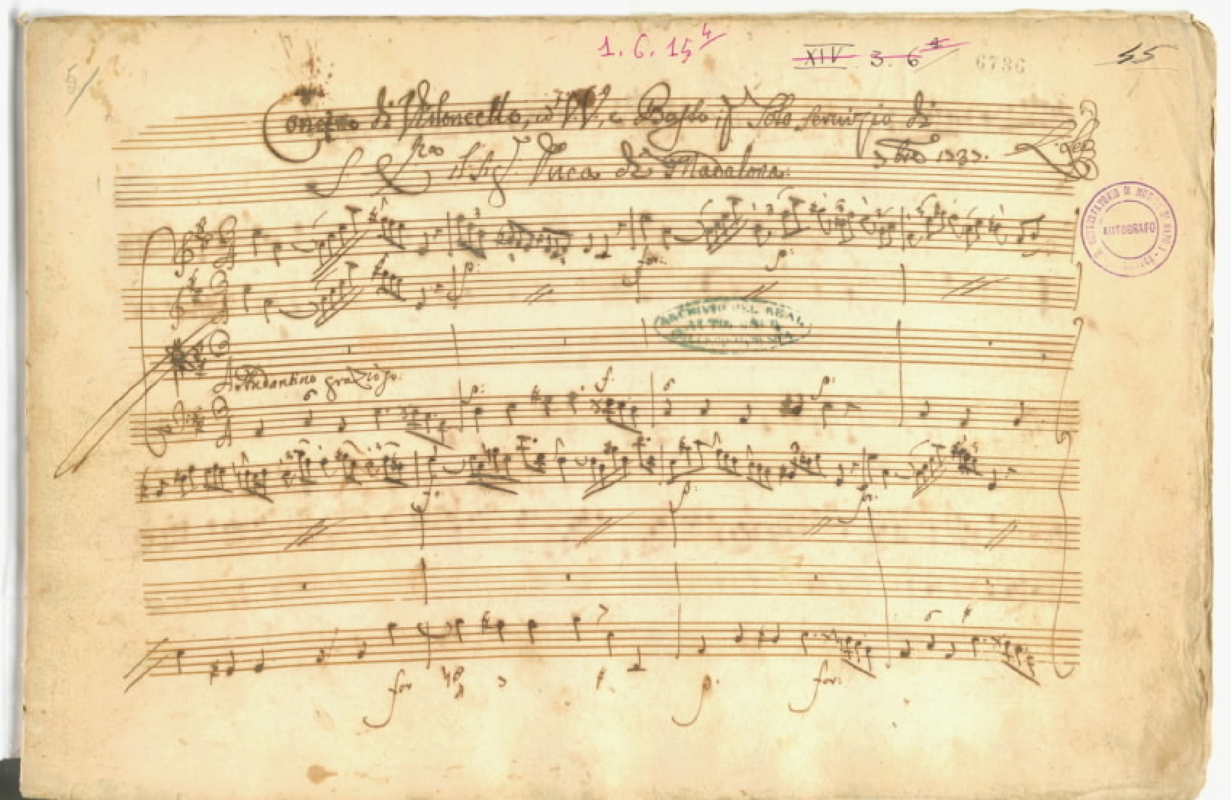 5/
1. 6. 15 4
XIV 3. 6 4
6736
55
Concerto di Violoncello, con VV., e Basso, p Solo servizio di
S. E. il Sig. Duca di Madalona.
7bre 1737.
Leo
AUTOGRAFO
ARCHIVIO DEL REAL
Andantino grazioso.
p: for: p:
p: f. p:
6 6
f. p: for:
6
for p. for: